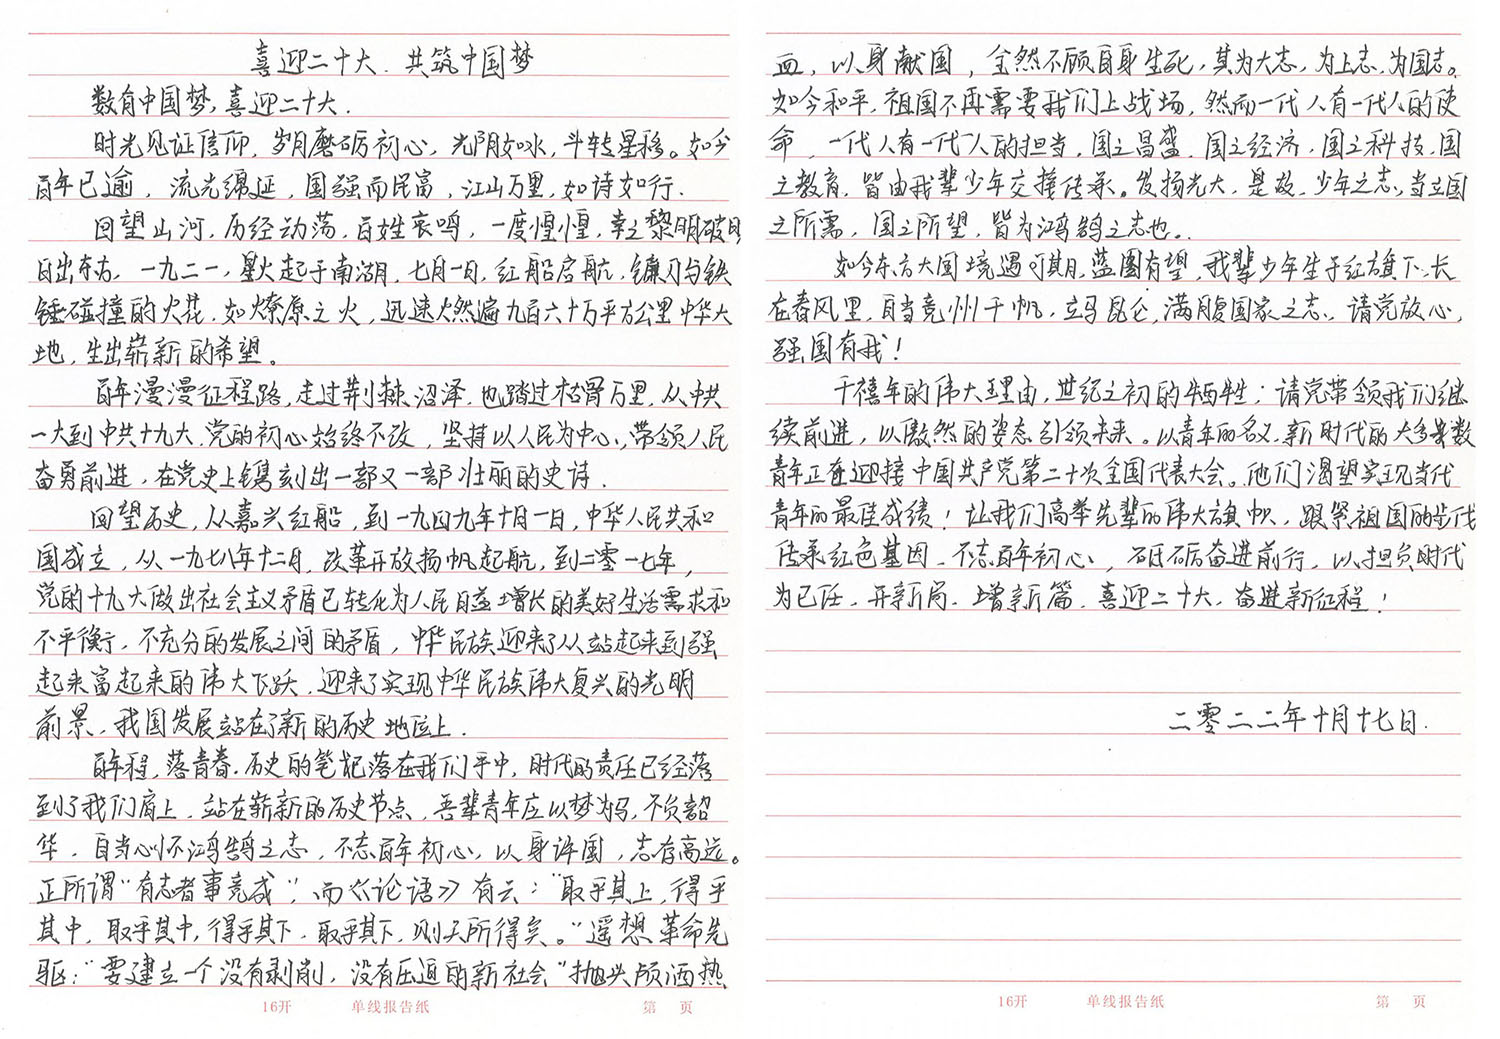 喜迎二十大.共筑中国梦
数育中国梦,喜迎二十大.
时光见证信仰,岁月磨砺初心,光阴如水,斗转星移。如今
百年已逾,流光绵延,国强而民富,江山万里,如诗如行.
回望山河,历经动荡,百姓哀鸣,一度惶惶,幸之黎明破日
日出东方,一九二一,星火起于南湖,七月一日,红船启航,镰刀与铁
锤碰撞的火花,如燎原之火,迅速燃遍九百六十万平方公里中华大
地,生出崭新的希望。
百年漫漫征程路,走过荆棘沼泽,也踏过枯骨万里,从中共
一大到中共十九大,党的初心始终不改,坚持以人民为中心,带领人民
奋勇前进,在党史上镌刻出一部又一部壮丽的史诗.
回望历史,从嘉兴红船,到一九四九年十月一日,中华人民共和
国成立,从一九七八年十二月,改革开放扬帆起航,到二零一七年,
党的十九大做出社会主义矛盾已转化为人民日益增长的美好生活需求和
不平衡,不充分的发展之间的矛盾,中华民族迎来了从站起来到强
起来富起来的伟大飞跃,迎来了实现中华民族伟大复兴的光明
前景,我国发展站在了新的历史地位上.
百年程,落青春.历史的笔记落在我们手中,时代的责任已经落
到了我们肩上,站在崭新的历史节点,吾辈青年应以梦为马,不负韶
华,自当心怀鸿鹄之志,不忘百年初心,以身许国,志存高远。
正所谓“有志者事竟成”,而《论语》有云:“取乎其上,得乎
其中,取乎其中,得乎其下,取乎其下,则无所得矣。”遥想革命先
驱:“要建立一个没有剥削,没有压迫的新社会”抛头颅洒热
血,以身献国,全然不顾自身生死,其为大志,为上志,为国志。
如今和平,祖国不再需要我们上战场,然而一代人有一代人的使
命,一代人有一代人的担当,国之昌盛,国之经济,国之科技,国
之教育,皆由我辈少年交接传承。发扬光大,是故,少年之志,当立国
之所需,国之所望,皆为鸿鹄之志也。
如今东方大国境遇可期,蓝图有望,我辈少年生于红旗下,长
在春风里,自当竞州千帆,立马昆仑,满腹国家之志,请党放心,
强国有我!
千禧年的伟大理由,世纪之初的牺牲;请党带领我们继
续前进,以傲然的姿态引领未来。以青年的名义,新时代的大多数
青年正在迎接中国共产党第二十次全国代表大会。他们渴望实现当代
青年的最佳成绩!让我们高举先辈的伟大旗帜,跟紧祖国的步伐
传承红色基因,不忘百年初心,砥砺奋进前行,以担负时代
为己任,开新局,增新篇,喜迎二十大,奋进新征程!
二零二二年十月十七日.
16开 单线报告纸 第 页
16开 单线报告纸 第 页